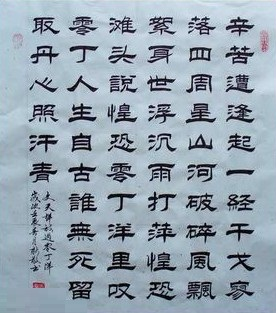 辛苦遭逢起一經干戈寥
落四周星山河破碎風飄
絮身世浮沉雨打萍惶恐
滩头說惶恐零丁洋里叹
零丁人生自古誰無死留
取丹心照汗青
文天祥詩過零丁洋
歲次壬辰春月書